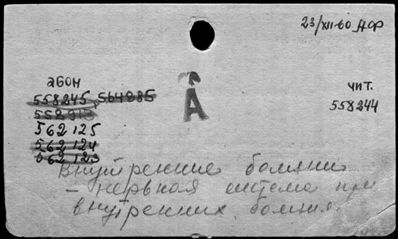 23/XII-60
абон
чит.
558245, 564285
558244
А
562125
562124
562123
Внутренние болезни
- нервная система при
внутренних болезнях